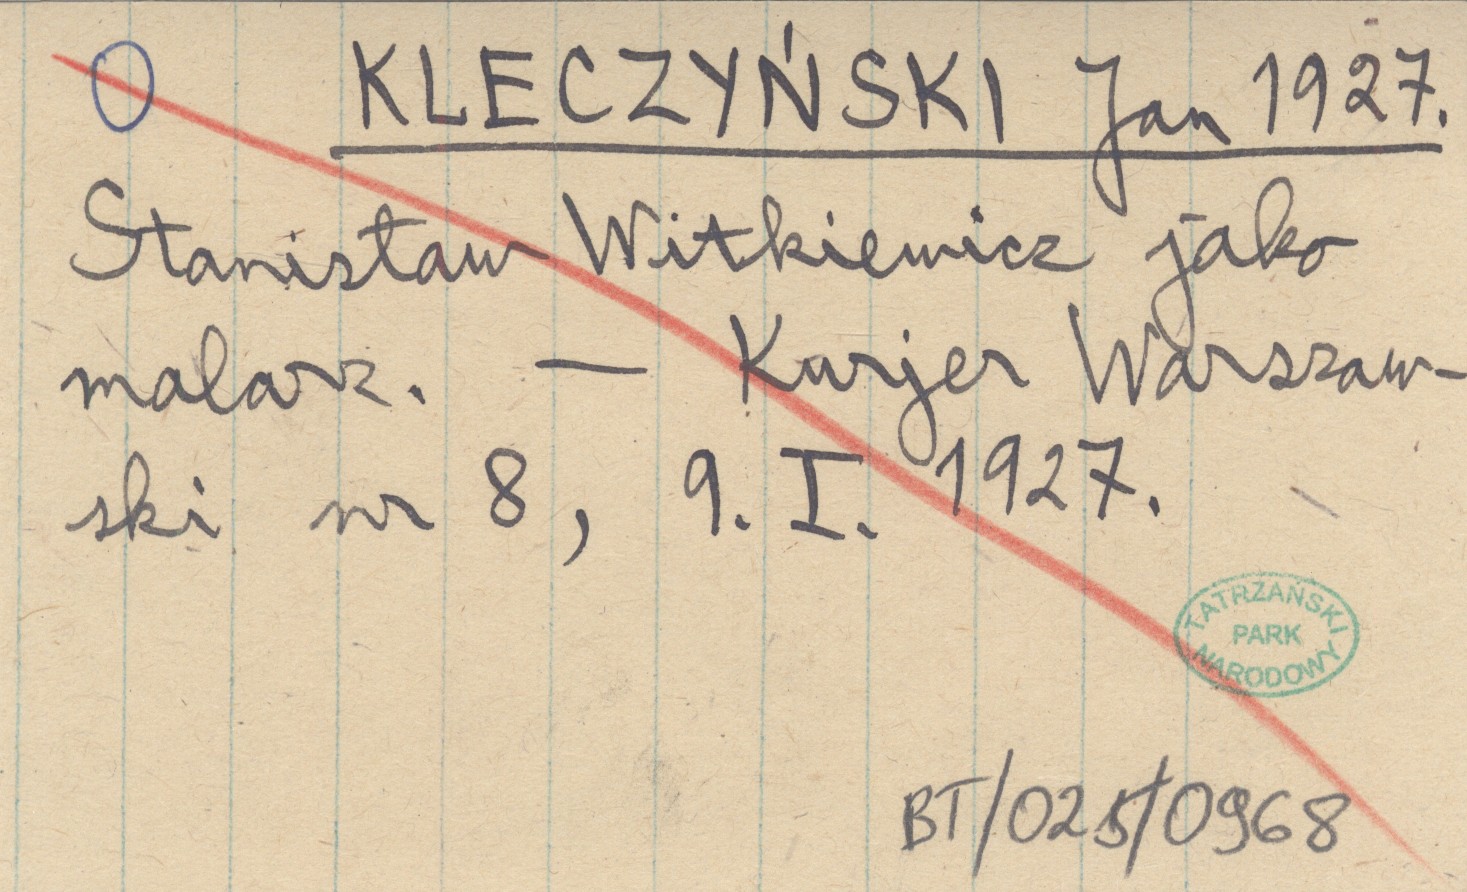 KLECZYŃSKI Jan 1927.
Stanisław Witkiewicz jako
malarz. — Kurjer Warszaw-
ski nr 8, 9. I. 1927.
TATRZAŃSKI
PARK
NARODOWY
BT/025/0968